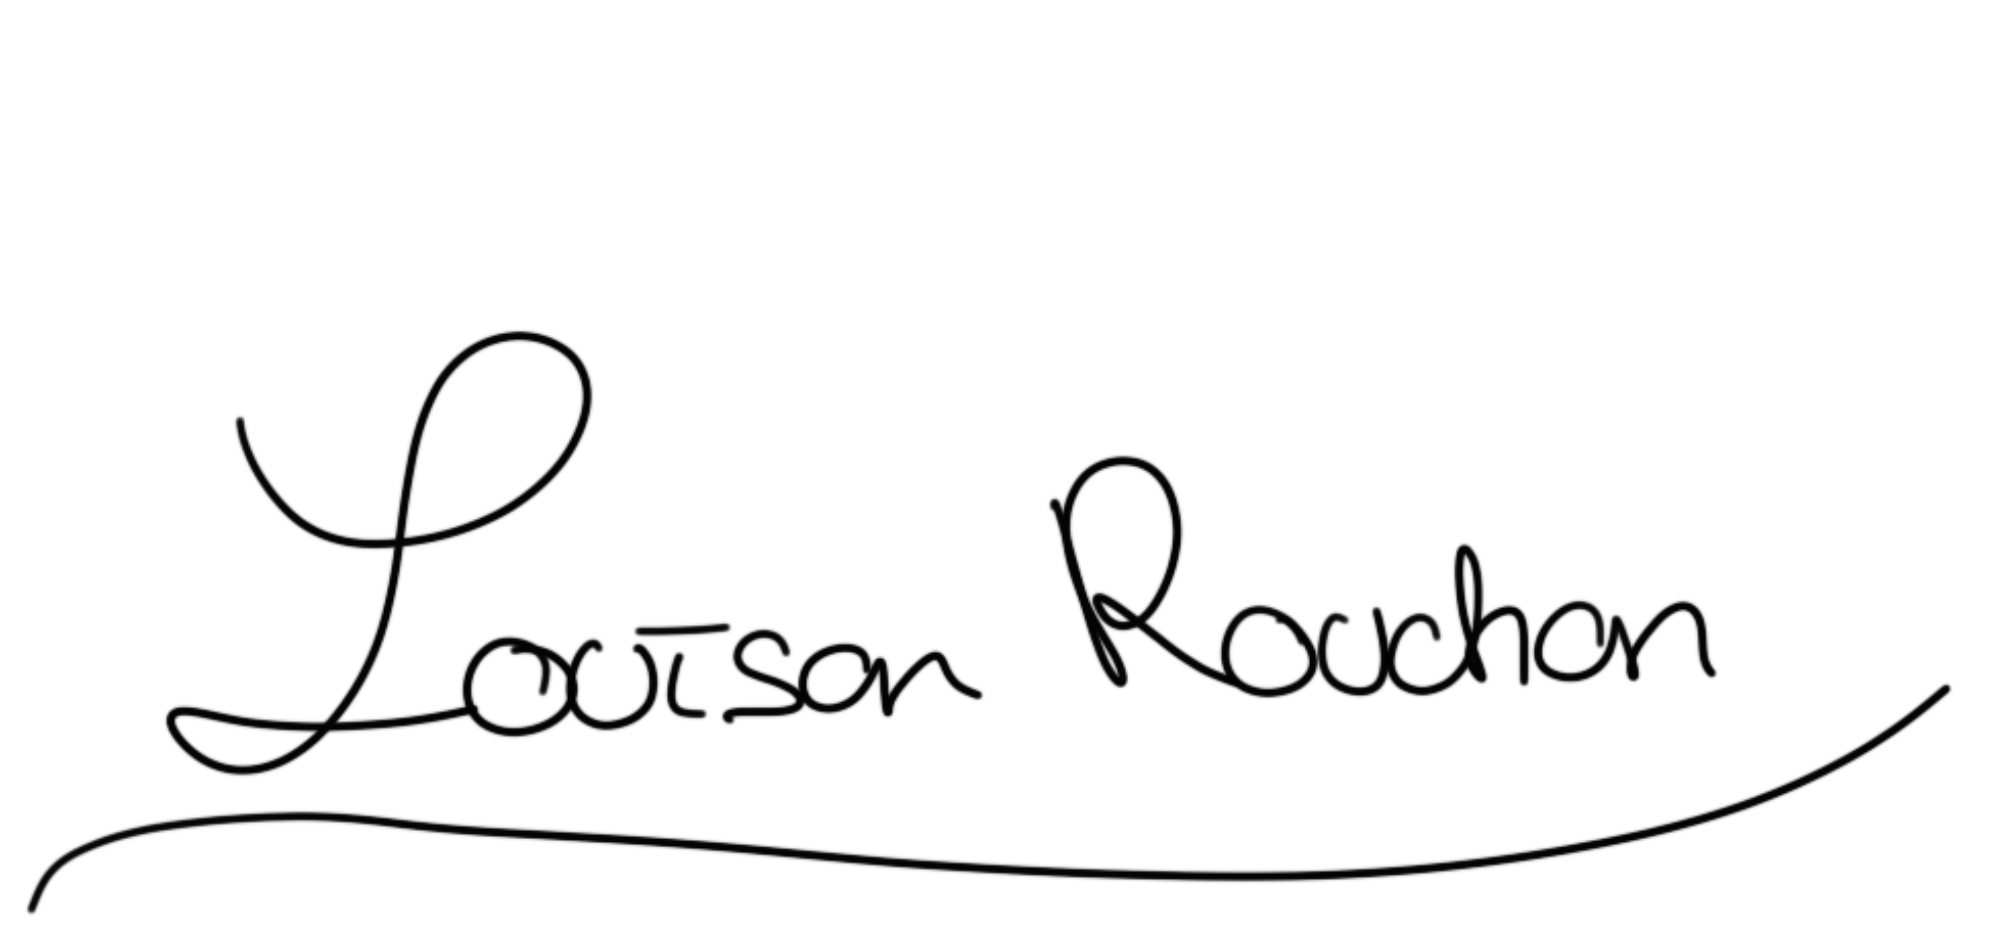 Louison Rouchon